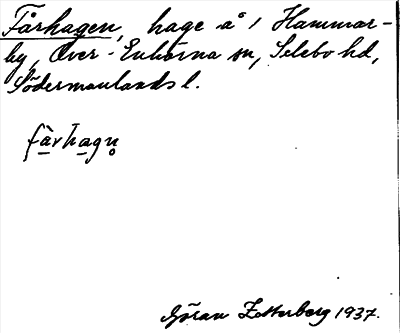 Fårhagen, hage å 1 Hammar-
by, Över-Enhörna sn, Selebo hd,
Södermanlands l.
fårhagn̥
Göran Zetterberg 1937.